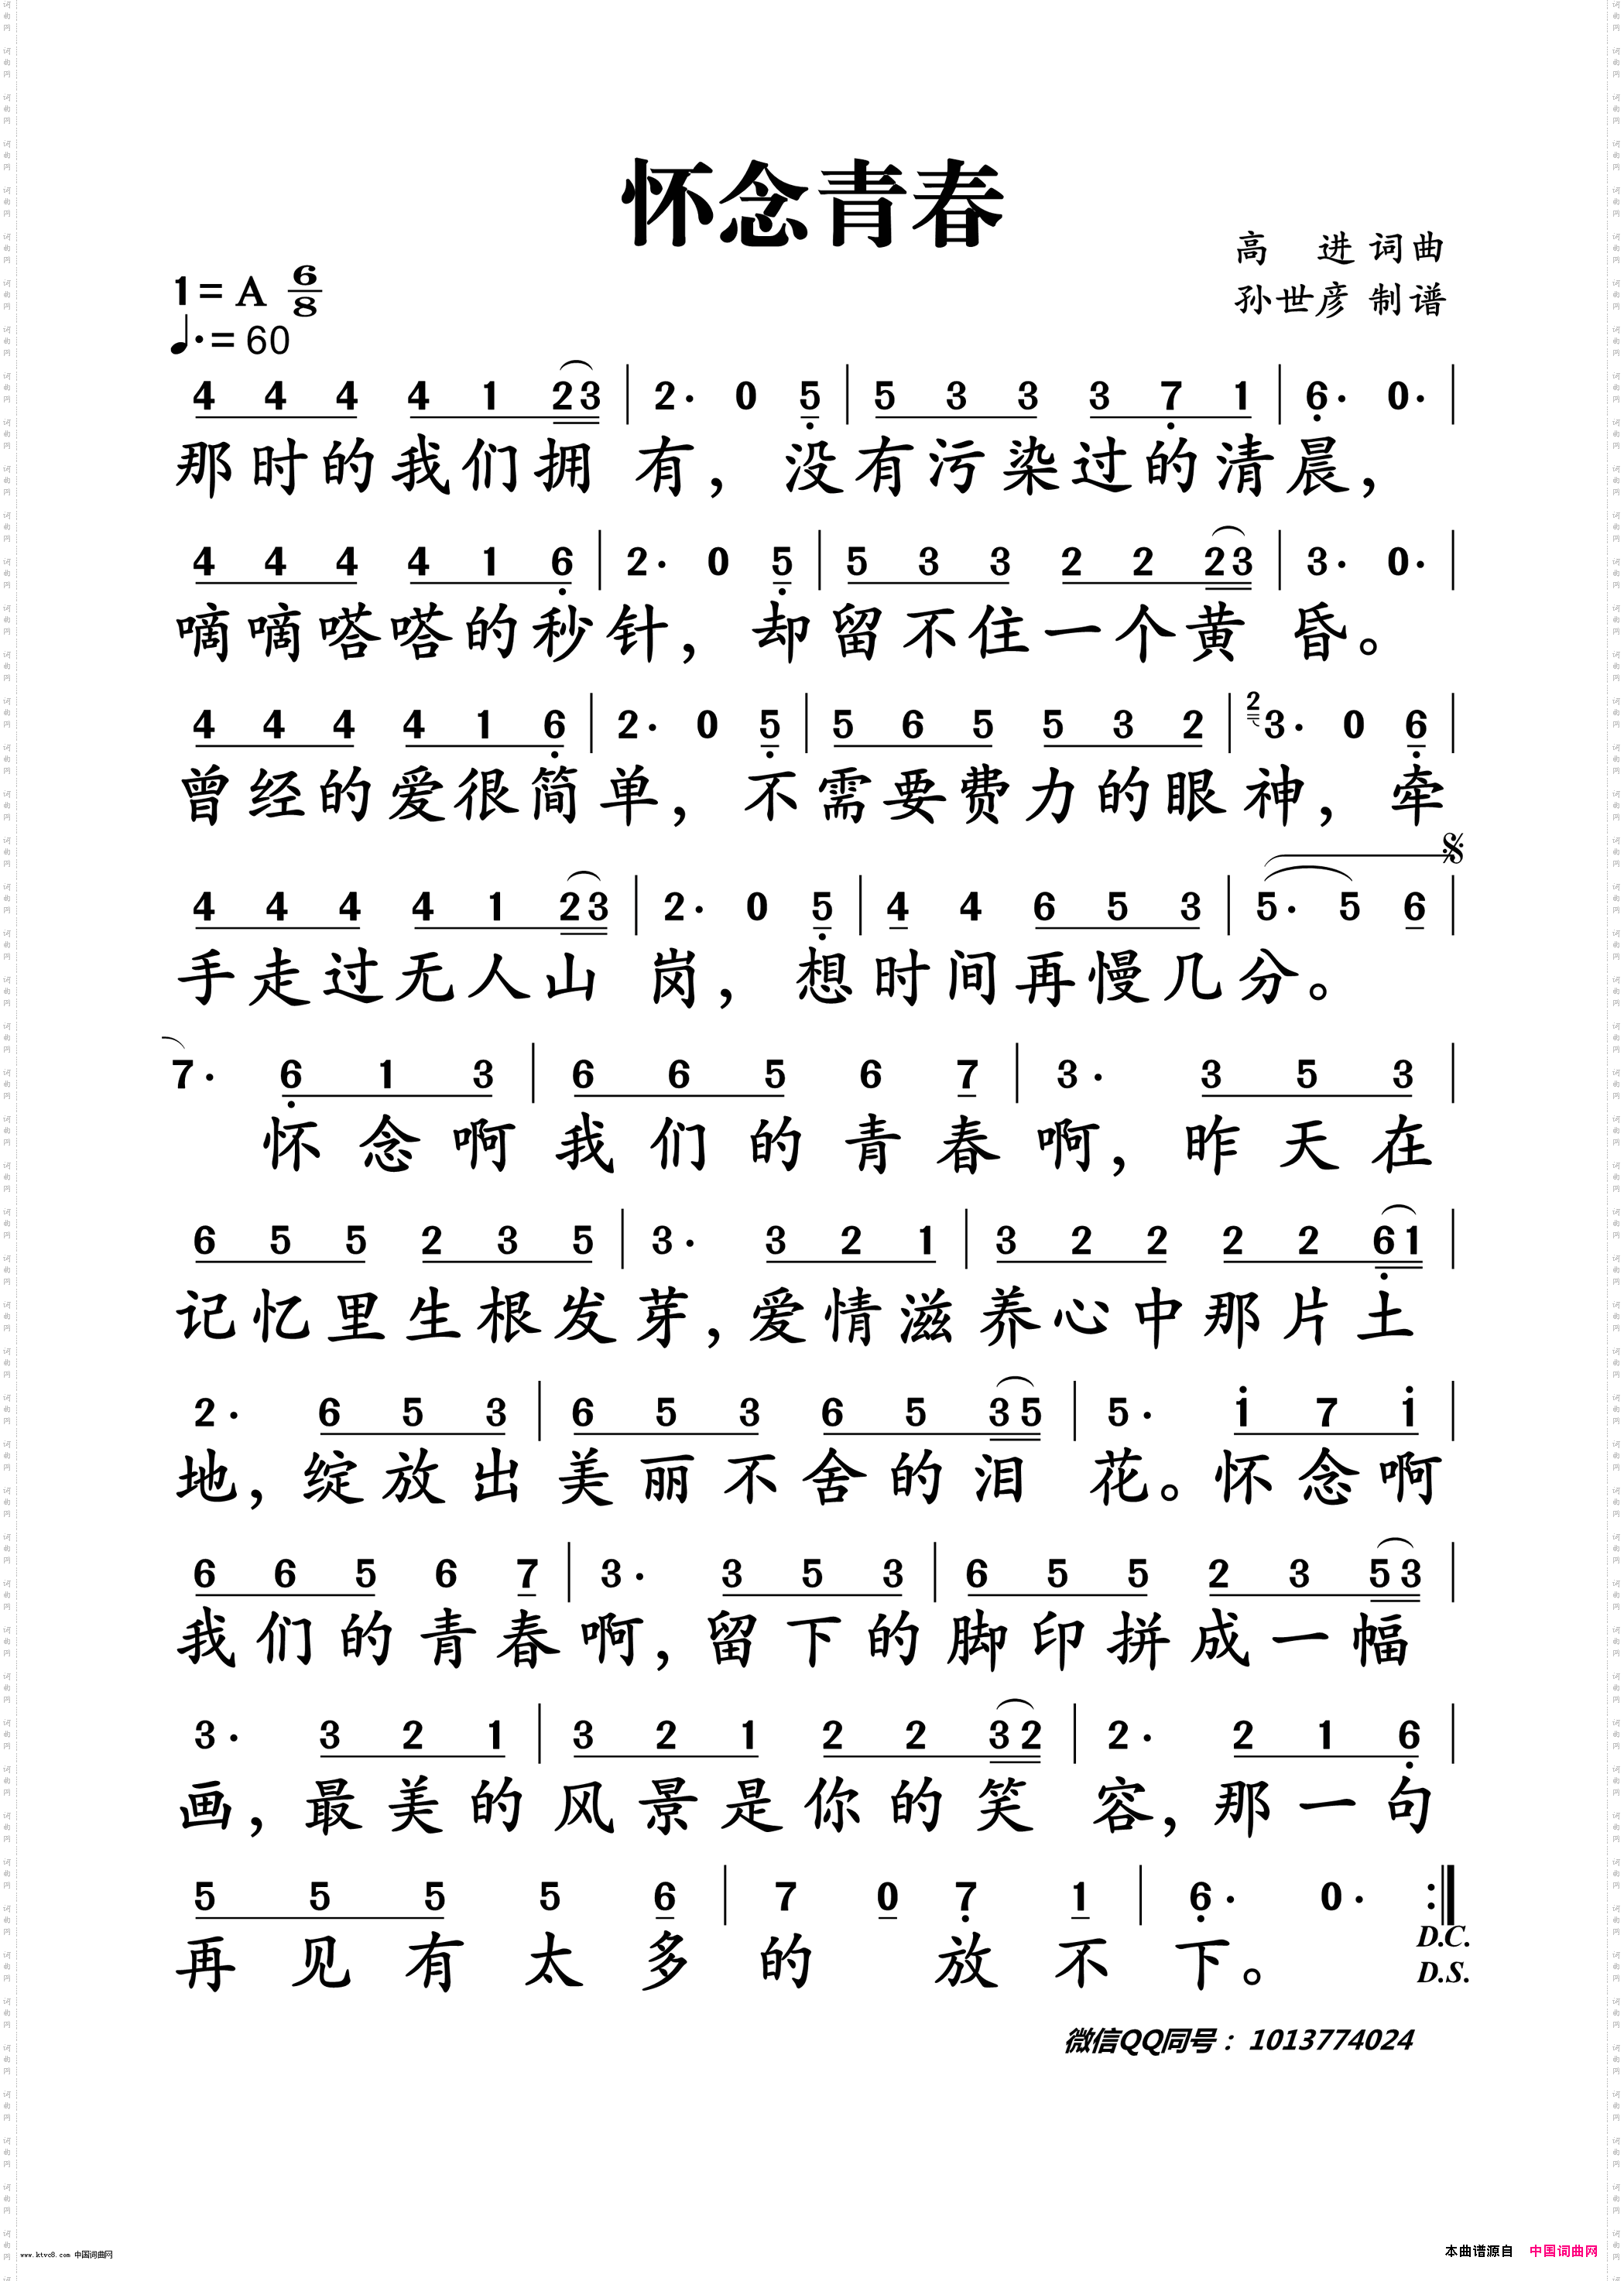 怀念青春
高 进 词曲
1=A 6/8
孙世彦 制谱
♩.=60
4 4 4 4 1 2 3 | 2· 0 5 | 5 3 3 3 7 1 | 6· 0· |
那时的我们拥 有，没有污染过的清晨，
4 4 4 4 1 6 | 2· 0 5 | 5 3 3 2 2 2 3 | 3· 0· |
嘀嘀嗒嗒的秒针，却留不住一个黄 昏。
4 4 4 4 1 6 | 2· 0 5 | 5 6 5 5 3 2 | 2 3· 0 6 |
曾经的爱很简单，不需要费力的眼神，牵
4 4 4 4 1 2 3 | 2· 0 5 | 4 4 6 5 3 | 5· 5 6 |
手走过无人山 岗，想时间再慢几分。
7· 6 1 3 | 6 6 5 6 7 | 3· 3 5 3 |
怀念啊我们的青春啊，昨天在
6 5 5 2 3 5 | 3· 3 2 1 | 3 2 2 2 2 6 1 |
记忆里生根发芽，爱情滋养心中那片土
2· 6 5 3 | 6 5 3 6 5 3 5 | 5· 1 7 1 |
地，绽放出美丽不舍的泪 花。怀念啊
6 6 5 6 7 | 3· 3 5 3 | 6 5 5 2 3 5 3 |
我们的青春啊，留下的脚印拼成一幅
3· 3 2 1 | 3 2 1 2 2 3 2 | 2· 2 1 6 |
画，最美的风景是你的笑 容，那一句
5 5 5 5 6 | 7 0 7 1 | 6· 0· :|
再见有太多的 放不下。
D.C.
D.S.
微信QQ同号：1013774024
www.ktvc8.com 中国词曲网
本曲谱源自 中国词曲网